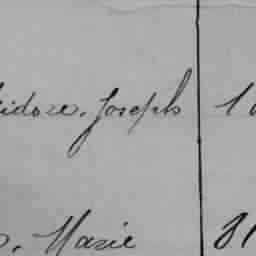 idore. Joseph 1
. Marie 81